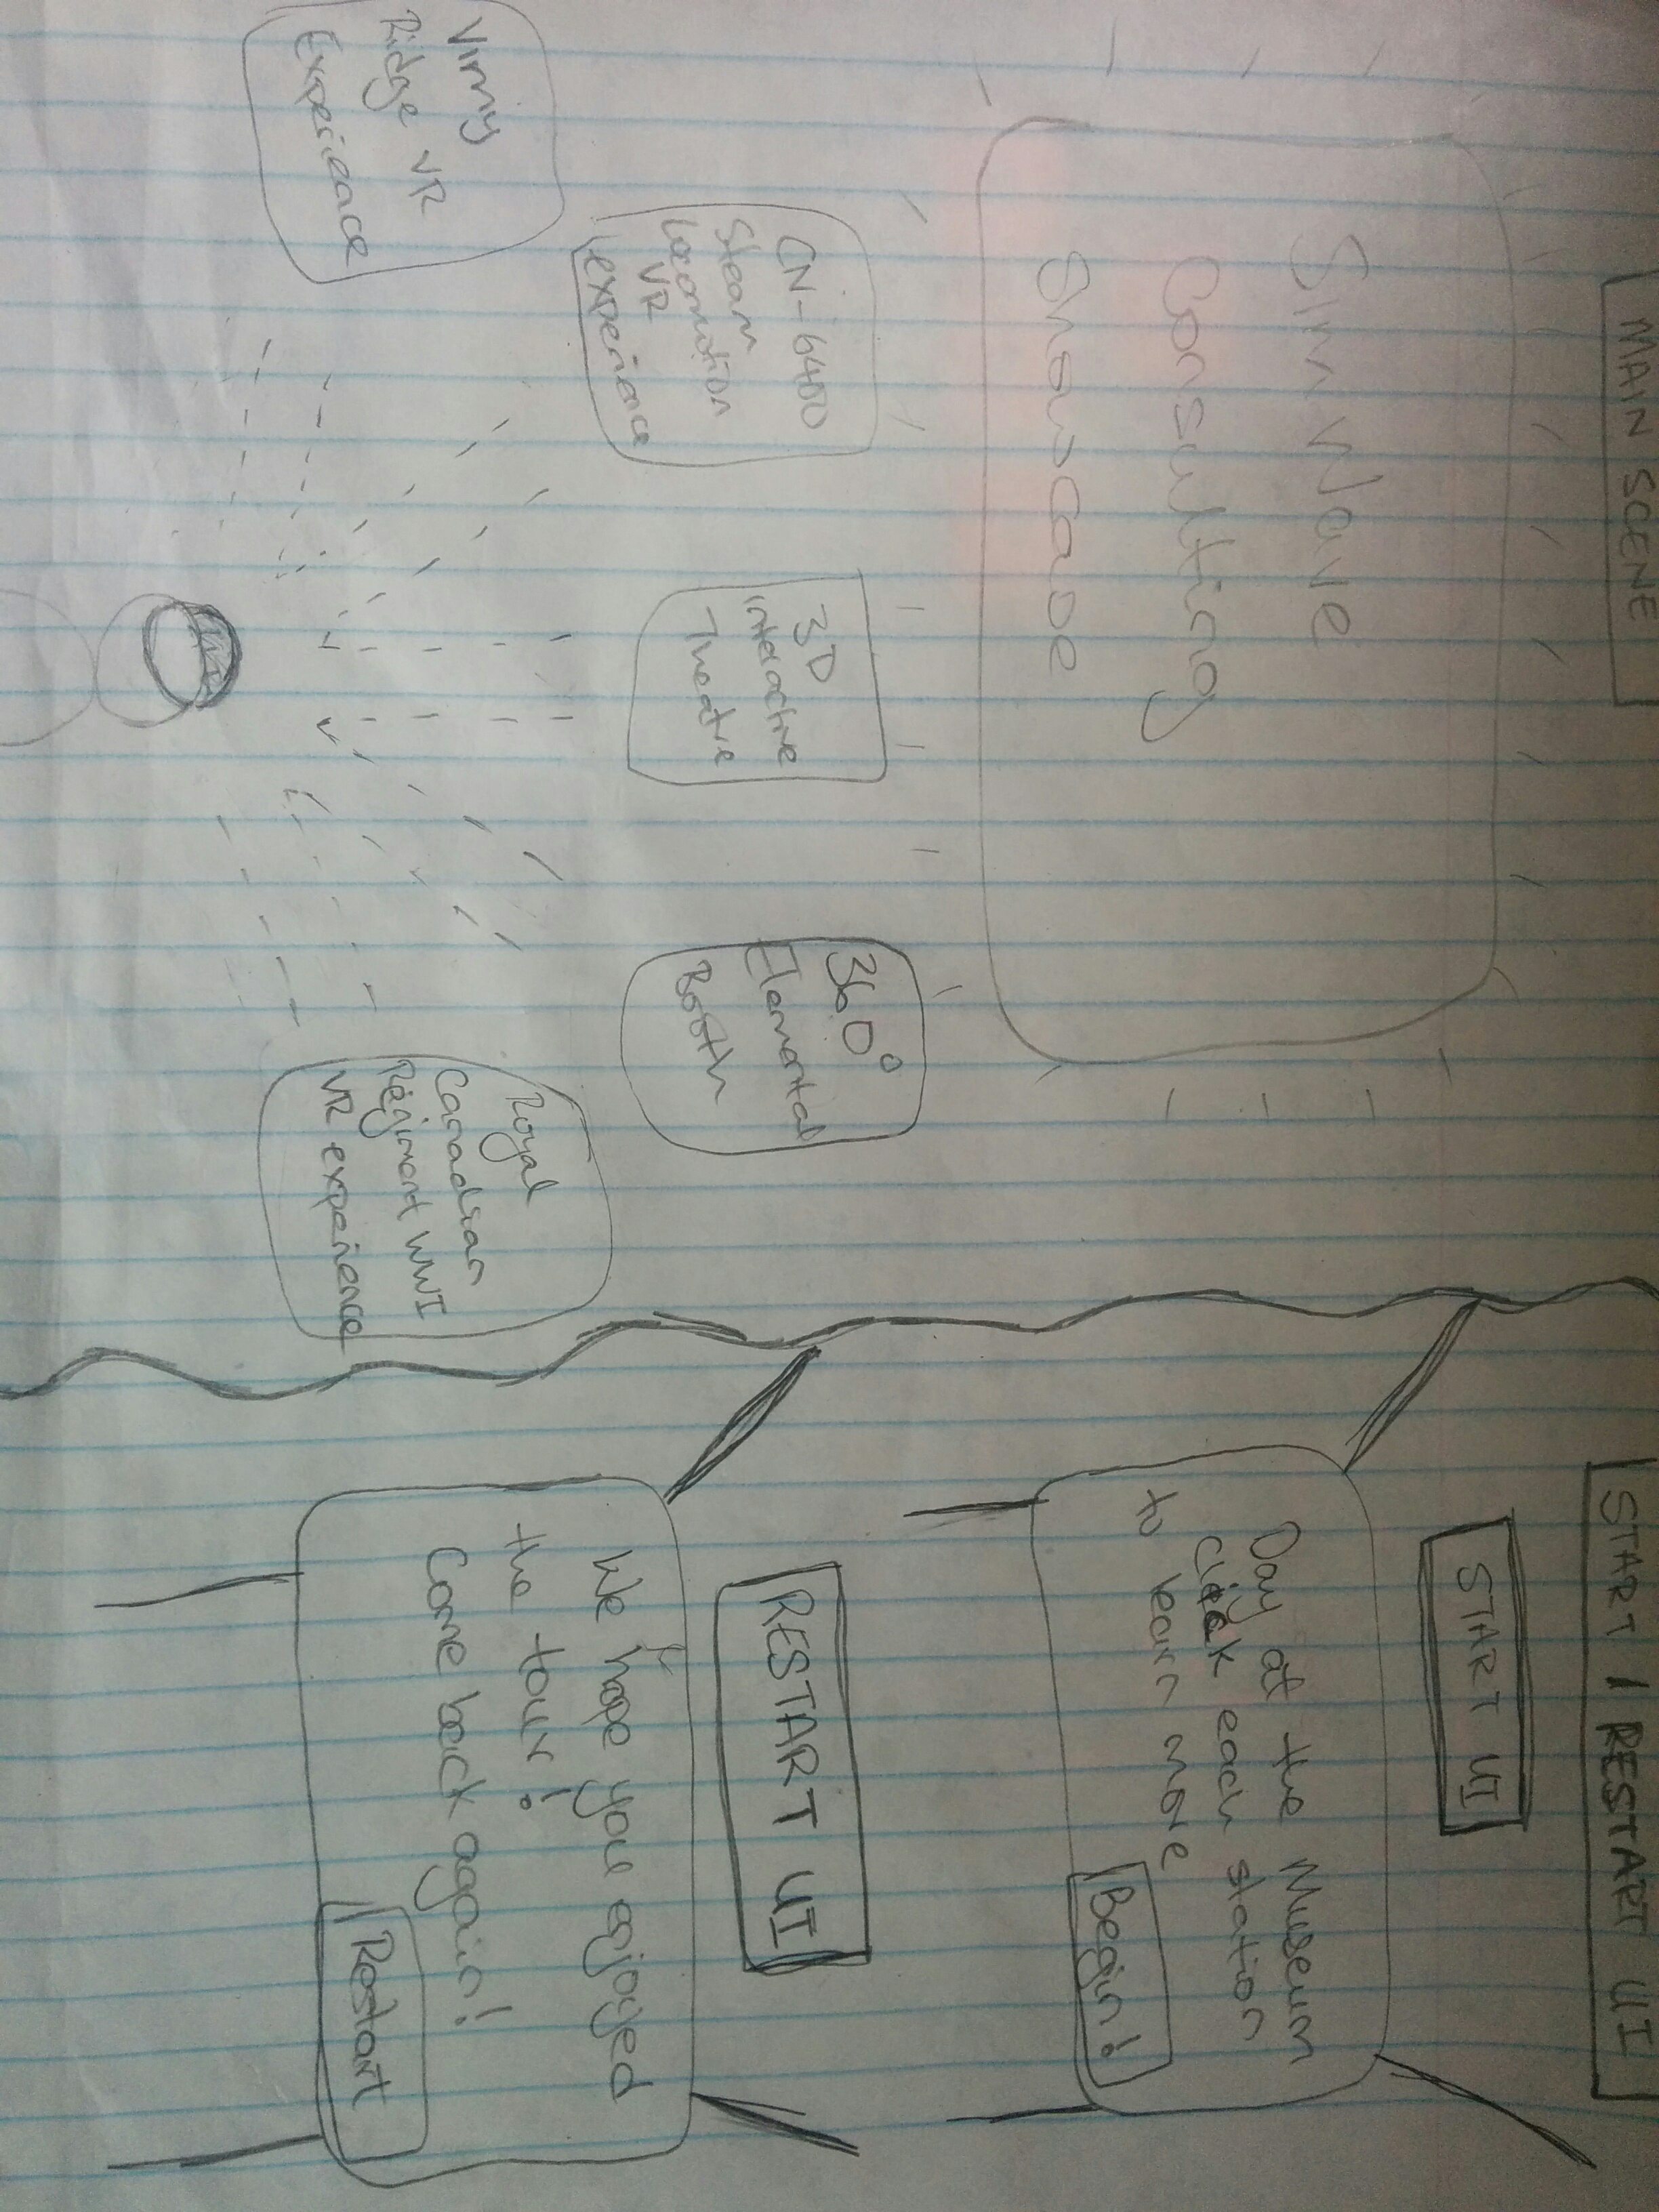 MAIN SCENE
SimWave
Consulting
Showcase
CN-6400
Steam
Locomotion
VR
experience
3D
interactive
Theatre
360°
Elemental
Booth
Vimy
Ridge VR
Experience
Royal
Canadian
Regiment WWI
VR experience
START / RESTART UI
START UI
Day at the Museum
click each station
to learn more
Begin!
RESTART UI
We hope you enjoyed
the tour!
Come back again!
Restart